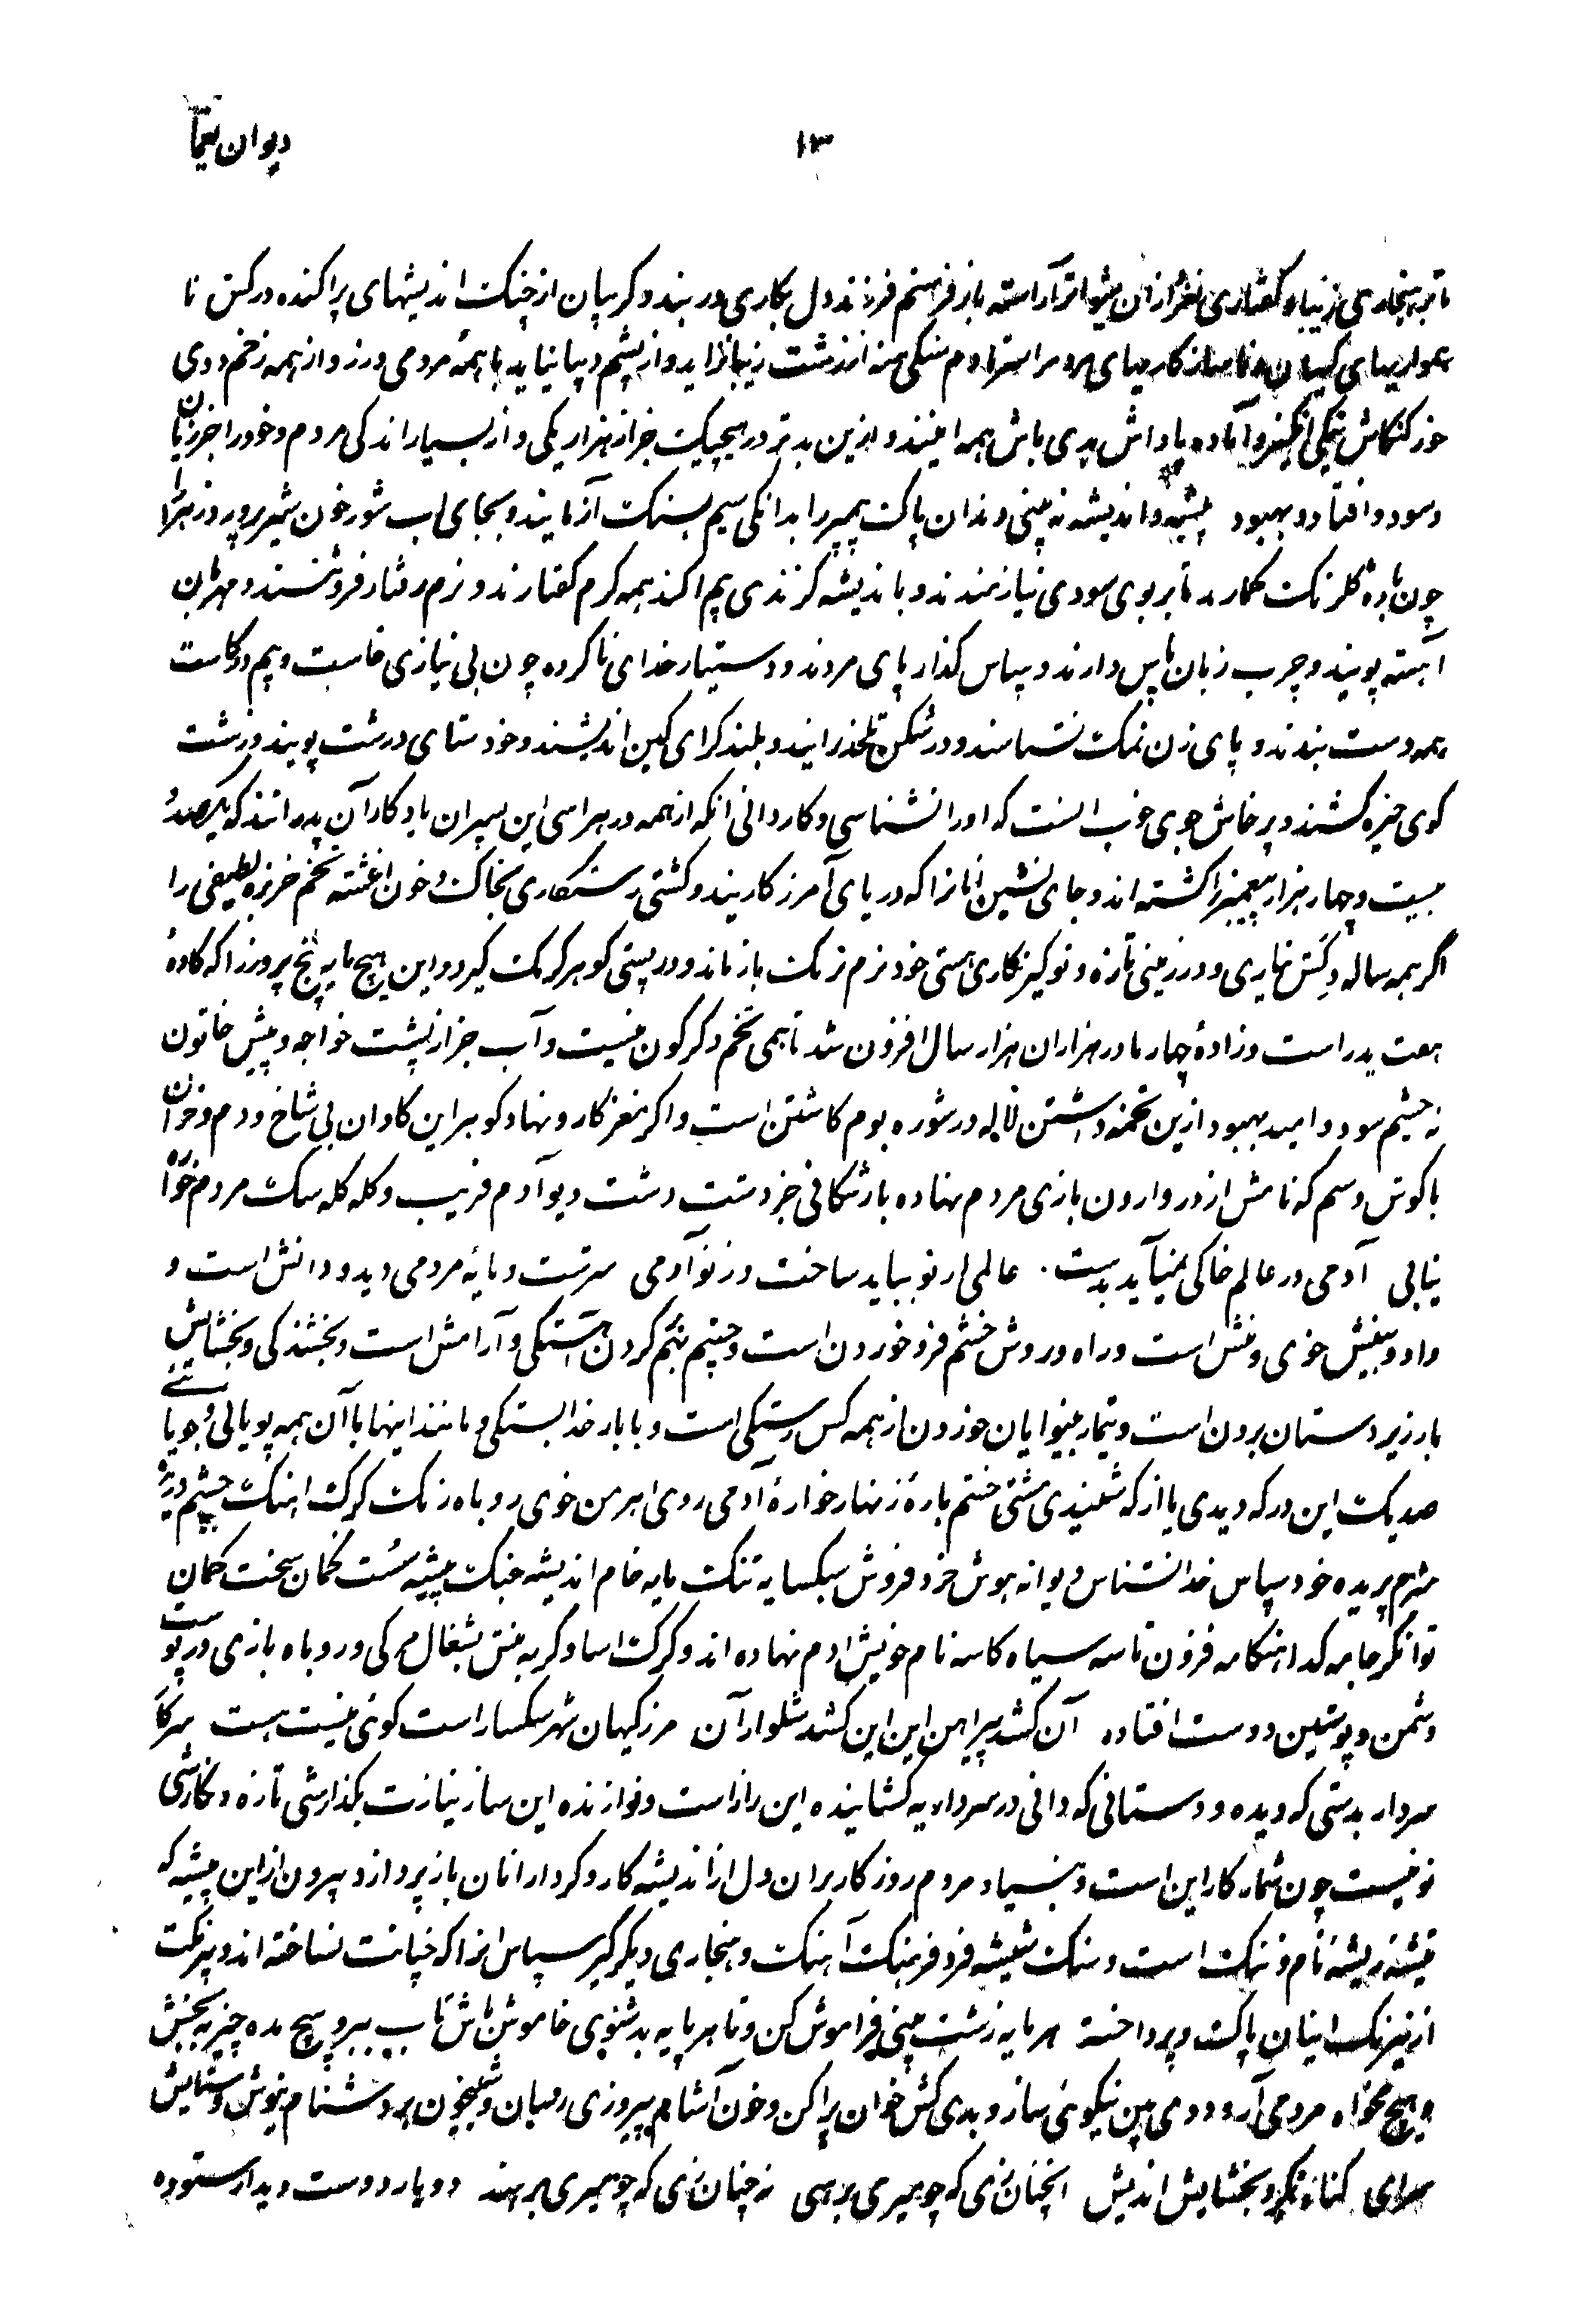 دیوان یغما
۱۳
تا به هنجاری زیبا و گفتاری نغز از آن شیواتر آراسته باز فرستم فرزند دل بکاری در بند و کریبان از چنک اندیشهای پراکنده درکش نا
همواریهای کیهان و ناسازکاریهای مرد مر استرا دم سنکی منه از زشت زیبا نزاید و از پشم دیبا نیاید با همهٔ مردمی ورز و از همه زخم ددی
خور کنکاش نیکی انکیز و آماده پاداش بدی باش همه اینند و ازین بدتر در هیچیک جز از هزار یکی و از بسیار اندکی مردم و خود را جز زیان
و سود و افتاد و بهبود پیشه و اندیشه نه بینی دندان پاکت پیمبر را بدانکی سیم بسنک آزمایند و بجای اب شور خون شیر پرور زهرا را
چون باده گلرنک کمارند تا بر بوی سودی نیازمندند و با ندیشه کزندی بیم اکند همه کرم گفتارند و نرم رفتار فروتنند و مهربان
آهسته پویند و چرب زبان پاس دارند و سپاس کذار پای مردند و دستیار خدای ناکرده چون بی نیازی خاست و بیم در کاست
همه دست بندند و پای زن نمک نشناسند و در شکن تلخند رایند و بلند کرای کین اندیشند و خود ستای درشت پویند و زشت
کوی خیره کشند و پرخاش جوی خوب السنت که اورا نشناسی و کاردانی آنکه از همه در هراسی این پسران یادکار آن پدرانند که یکصد و
بیست و چهار هزار پیغمبر را کشته اند و جای نشین انانرا که دریای آمرز کارینید و کشتی رستکاری بخاک و خون اغشته تخم خربزه لطیفی را
اگر همه ساله در کش نهاری و در زمینی تازه و نو کیر نکاری هستی خود نرم نرمک باز ماند و در پستی کوهر کرمک گیرد و این هیچ مایه پنج پرورز را که کادهٔ
هفت پدر است و زادهٔ چهار مادر هزاران هزار سال افزون شد تا همی تخم دکرکون نیست و آب جز از پشت خواجه و پیش خاتون
نه چشم سود و امید بهبود ازین تخمه داشتن لاله در شوره بوم کاشتن است و اگر نغز کار و نهاد کوهر این کاوان بی شاخ و دم و خران
با کوش و سم که نامش از در وارون بازی مردم نهاده باز شکافی جز دست دشت دیو آدم فریب و کله کله سک مردم خواره
نیابی آدمی در عالم خاکی نمیآید بدست. عالمی از نو بباید ساخت وز نو آدمی سرشت و مایه مردمی دید و دانش است و
داد و بینش خوی و منش است و راه و روش خشم فرو خوردن است و چشم بهم کردن آهستگی و آرامش است و بخشندکی و بخشایش
بار زیر دستان بردن است و تیمار بینوایان خوردن از همه کس رستکی است و با بار خدا بستکی و مانند اینها با آن همه پویائی و جویائی
صد یک این در که دیدی یا از که شنیدی مشتی خشم بارهٔ زنهار خوارهٔ آدمی روی اهرمن خوی روباه رنک کرک اهنک چشم دریده
شرم پریده خود سپاس خدا نشناس دیوانه هوش خرد فروش سبکسایه تنک مایه خام اندیشه جنک پیشه سست کمان سخت کمان
توانکر جامه کدا هنکامه فزون تاسه سیاه کاسه نام خویش ادم نهاده اند و کرک اسا و کربه منش بشغال مرکی و روباه بازی در پوست
دشمن و پوستین دوست افتاده آن کشد پیراهن این این کشد شلوار آن مرز کیهان شهر سکسار است کوئی نیست هست سرکار
سردار بدستی که دیده و دستانی که دانی در سردار به کشاینده این راز است و نوازنده این ساز نیازت بکذارشی تازه و نکارشی
نو نیست چون شمار کار این است و بنیاد مردم روزکار بران دل از اندیشه کار و کردار انان باز پرداز و بیرون از این پیشه که
تیشه ریشه نام و ننک است و سنک شیشه فر و فرهنک آهنک و هنجاری دیکر کیر سپاس انرا که خپانت نساخته اند و پیرنکت
از نیرنک اینان پاک پرداخته هر مایه زشت بینی فراموش کن و تا هر پایه بد شنوی خاموش باش تاب ببر و پیچ مده چیز بخش
و هیچ مخواه مردمی آر و ددی بین نیکوئی ساز و بدی کش خوان پراکن و خون آشام پیروزی رسان و شبیخون بر دشنام نیوش و ستایش
سرای کناه نکر و بخشایش اندیش انچنان زی که چو میری برهی نه چنان زی که چو میری برهند دو یار دوست دیدار ستوده